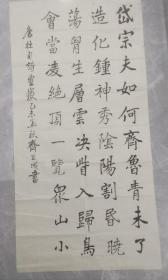 岱宗夫如何齊魯青未了
造化鍾神秀陰陽割昏曉
蕩胷生層雲決眥入歸鳥
會當凌絕頂一覽眾山小
唐杜甫詩望嶽乙未秋齊書